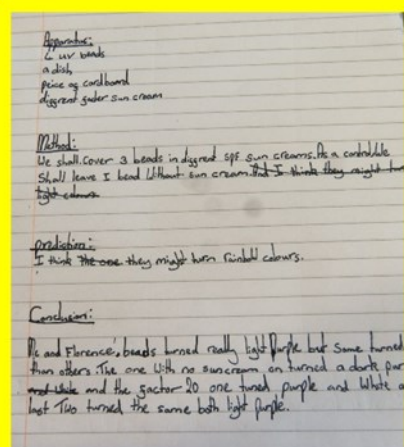 Apparatus:
4 uv beads
a dish
peice of cardboard
diffrent facter sun cream
Method:
We shall cover 3 beads in diffrent spf sun creams. As a control We
Shall leave 1 bead Without sun cream. And I think they might turn
light colours
prediction:
I think the one they might turn rainbold colours.
Conclusion:
Me and Florence's beads turned really light Purple but Some turned
than others. The one With no suncream on turned a dark pur
and White and the facter 20 one tuned purple and White
last Two turned the same both light Purple.